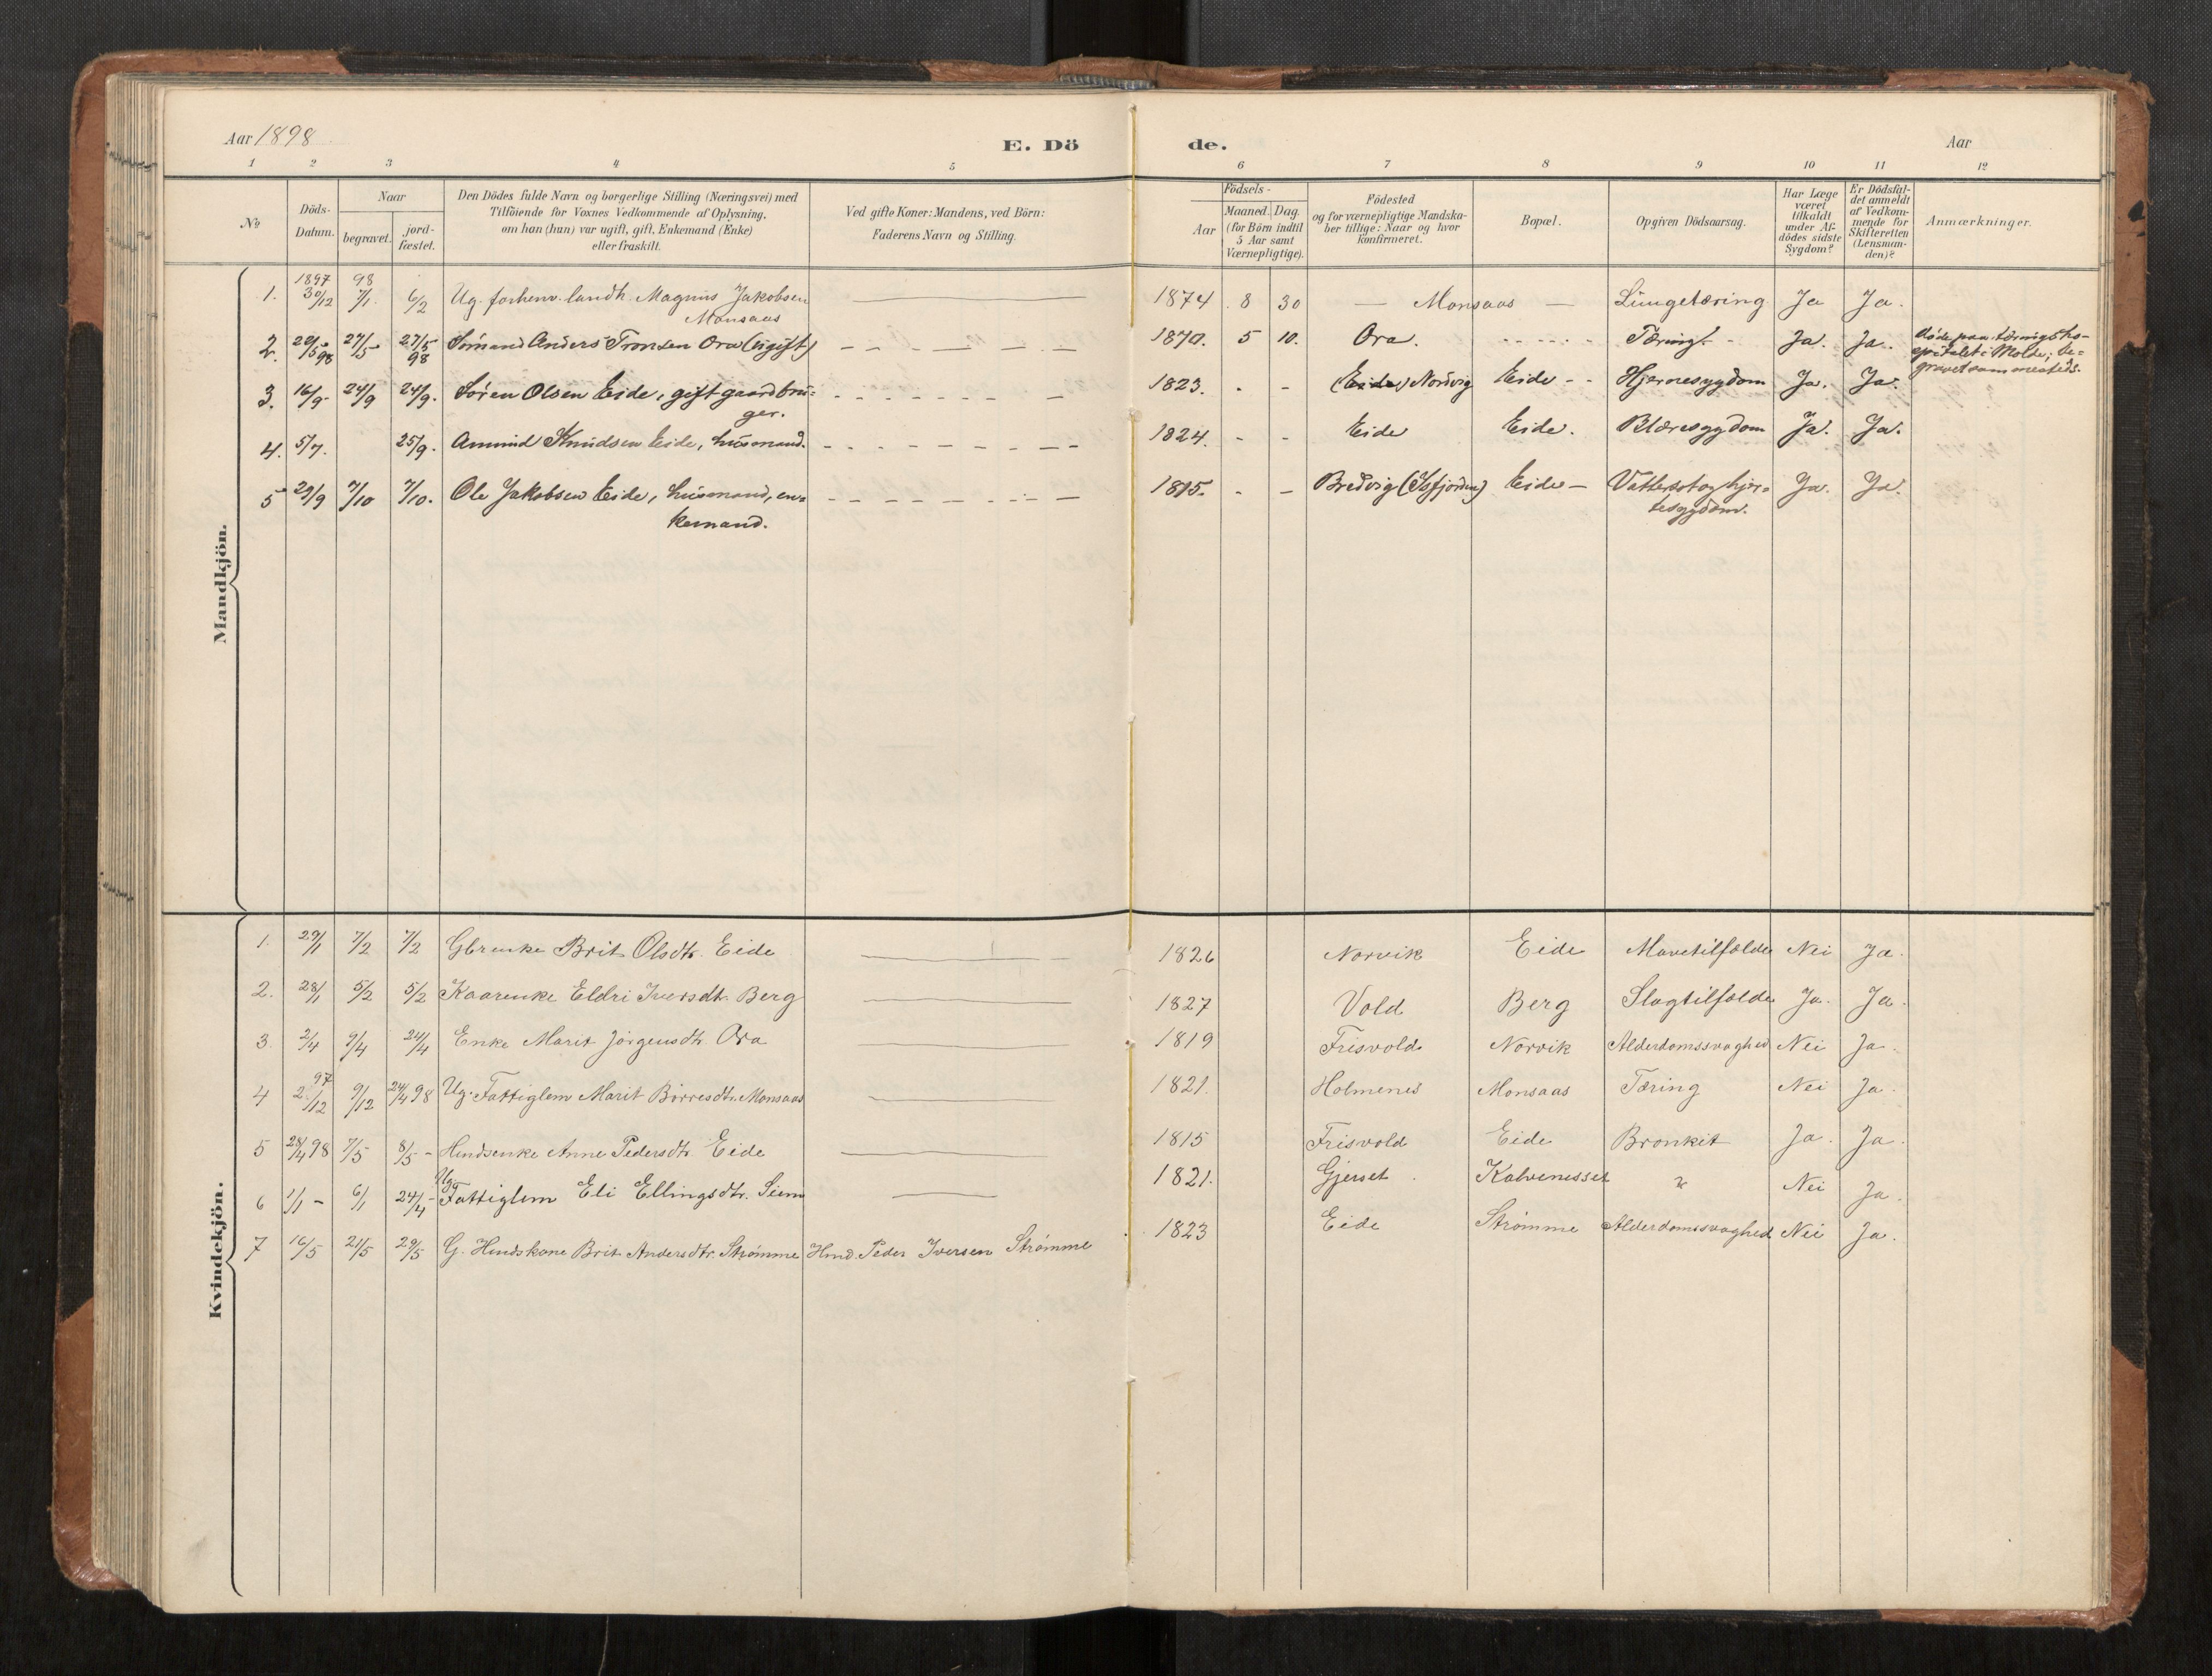 Aar 1898
E. Dö de.
Aar
1 2 3 4 5 6 7 8 9 10 11 12
No
Döds-
Datum.
Naar
begravet.
jord-
fæstet.
Den Dödes fulde Navn og borgerlige Stilling (Næringsvei) med
Tilföiende for Voxnes Vedkommende af Oplysning,
om han (hun) var ugift, gift, Enkemand (Enke)
eller fraskilt.
Ved gifte Koner: Mandens, ved Börn:
Faderens Navn og Stilling.
Födsels-
Aar
Maaned. Dag.
(for Börn indtil
5 Aar samt
Værnepligtige).
Födested
og for værnepligtige Mandska-
ber tillige: Naar og hvor
konfirmeret.
Bopæl.
Opgiven Dödsaarsag.
Har Læge
været
tilkaldt
under Af-
dödes sidste
Sygdom?
Er Dödsfal-
det anmeldt
af Vedkom-
mende for
Skifteretten
(Lensman-
den)?
Anmærkninger.
Mandkjön.
1897 98
1. 30/12 7/1 6/2 Ug. forhenv. landh. Magnus Jakobsen 1874 8 30 — Monsaas — Lungetæring Ja Ja.
Monsaas
2. 20/5 98 27/5 27/5 98 Sömand Anders Tronsen Ora (ugift) 1870. 5 10. Ora. Tæring Ja. Ja. döde paa tæringsho-
spitalet i Molde; be-
gravet sammesteds.
3. 16/9 24/9 24/9. Sören Olsen Eide, gift gaardbru- 1823. - - (Eide) Nordvig Eide - - Hjernesygdom Ja. Ja.
ger.
4. 5/7. 25/9. Amund Knudsen Eide, husmand. 1824. - - Eide Eide. Blæresygdom Ja. Ja.
5 29/9 7/10 7/10. Ole Jakobsen Eide, husmand, en- 1815. - - Bredvig (Isfjorden) Eide — Vattersot og hjer- Ja. Ja.
kemand. tesygdom.
Kvindekjön.
1. 29/1 7/2 7/2 Gbrenke Brit Olsdtr. Eide 1826 Norvik Eide Mavetilfælde Nei Ja.
2. 28/1 5/2 5/2 Kaarenke Eldri Iversdt. Berg 1827 Vold Berg Slagtilfælde Ja. Ja.
3. 2/4 9/4 24/4 Enke Marit Jörgensdtr. Ora 1819 Frisvold Norvik Alderdomssvaghed Nei Ja.
4 2/12 97 9/12 24/4 98 Ug. Fattiglem Marit Börresdtr. Monsaas 1821. Holmenes Monsaas Tæring Nei Ja.
5 28/4 98 7/5 8/5 - Hmdsenke Anne Pedersdtr. Eide 1815 Frisvold Eide Bronkit Ja. Ja.
Ug.
6 1/1 - 6/1 24/4 - Fattiglem Eli Ellingsdtr. Siem 1821. Gjerset Kalvenesset " Nei Ja.
7 16/5 21/5 29/5 G. Hmdskone Brit Andersdtr. Strømme Hmd. Peder Iversen Strømme 1823 Eide Strømme Alderdomssvaghed Nei Ja.